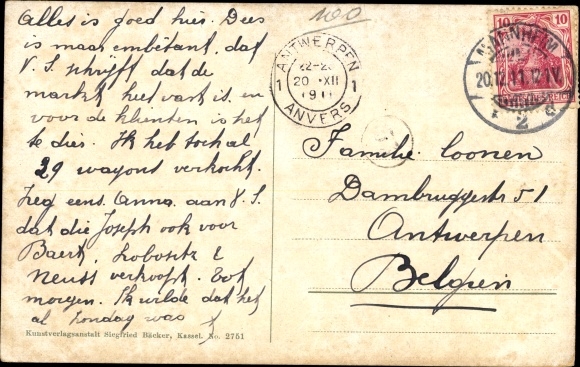 Alles is goed hier. Dees
is maar embêtant, dat
V. S. schrijft dat de
markt heel vast is en
voor de klienten is het
te dies. Ik heb toch al
29 wagons verkocht.
Zeg eens Anna. aan V. S.
dat die Joseph ook voor
Baert, Lobositz &
Neuss verkoopt. Tot
morgen. Ik wilde dat het
al Zondag was
Kunstverlagsanstalt Siegfried Bäcker, Kassel. No. 2751
100
ANTWERPEN
1 20 XII 1
1911
ANVERS
10 10
MANNHEIM
20.12.11.12-1 N.
* 2 c
Familie Coonen
Dambruggestr 51
Antwerpen
Belgien